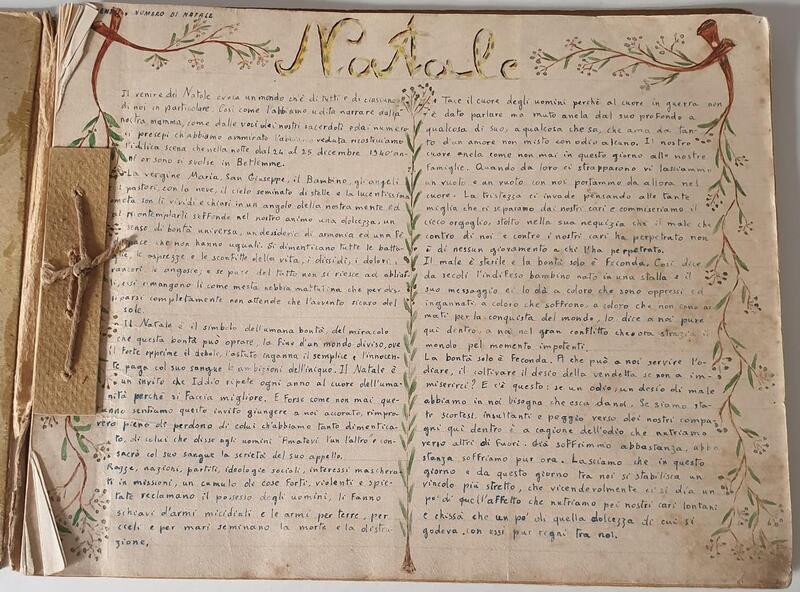 NUMERO DI NATALE
Natale
Il venire del Natale evoca un mondo ch'è di tutti e di ciascuno
di noi in particolare. Così come l'abbiamo udita narrare dalla
nostra mamma, come dalle voci dei nostri sacerdoti e dai numero
si presepi ch'abbiamo ammirato l'abbiam veduta ricostruiamo
l'idilica scena che nella notte dal 24 al 25 dicembre 1940 an
ni or sono si svolse in Betlemme.
La vergine Maria, San Giuseppe, il Bambino, gli angeli
i pastori, con la neve, il cielo seminato di stelle e la lucentissima
cometa son lì vividi e chiari in un angolo della nostra mente ed
al prontemplarli soffonde nel nostro animo una dolcezza, un
senso di bontà universa, un desiderio di armonia ed una fe
pace che non hanno uguali. Si dimenticano tutte le batta
glie, le asprezze e le sconfitte della vita, i dissidi, i dolori, i
rancori, le angosce; e se pure del tutto non si riesce ad obliar
li, essi rimangono lì come mesta nebbia mattutina che per dis
parsi completamente non attende che l'avvento sicuro del
sole.
Il Natale è il simbolo dell'umana bontà, del miracolo
che questa bontà può oprare, la fine d'un mondo diviso, ove
il forte opprime il debole, l'astuto inganna il semplice e l'innocen
te paga col suo sangue le ambizioni dell'iniquo. Il Natale è
un invito che Iddio ripete ogni anno al cuore dell'uma
nità perchè si faccia migliore. E forse come non mai que
anno sentiamo questo invito giungere a noi accorato, rimpro
vero pieno di perdono di colui ch'abbiamo tanto dimentica
to, di colui che disse agli uomini "Amatevi l'un l'altro" e con
sacrò col suo sangue la serietà del suo appello.
Razze, nazioni, partiti, ideologie sociali, interessi maschera
ti in missioni, un cumulo de cose forti, violenti e spie
tate reclamano il possesso degli uomini, li fanno
schiavi d'armi micidiali e le armi per terre, per
cieli e per mari seminano la morte e la distru
zione.
Tace il cuore degli uomini perchè al cuore in guerra non
è dato parlare ma muto anela dal suo profondo a
qualcosa di suo, a qualcosa che sa, che ama da tan
to d'un amore non misto con odio alcuno. Il nostro
cuore anela come non mai in questo giorno alle nostre
famiglie. Quando da loro ci strapparono vi lasciammo
un vuoto e un vuoto con noi portammo da allora nel
cuore. La tristezza ci invade pensando alle tante
miglia che ci separano dai nostri cari e commiseriamo il
cieco orgoglio, stolto nella sua nequizia che il male che
contro di noi e contro i nostri cari ha perpetrato non
è di nessun giovamento a chi l'ha perpetrato.
Il male è sterile e la bontà solo è feconda. Così dice
da secoli l'indifeso bambino nato in una stalla e il
suo messaggio, ei lo dà a coloro che sono oppressi ed
ingannati, a coloro che soffrono, a coloro che non sono ar
mati per la conquista del mondo, lo dice a noi pure
qui dentro, a noi nel gran conflitto che ora strazia il
mondo pel momento impotenti.
La bontà solo è feconda. A che può a noi servire l'o
diare, il coltivare il desio della vendetta se non a im
miserirci? E c'è questo: se un odio, un desio di male
abbiamo in noi bisogna che esca da noi. Se siamo sta
ti scortesi, insultanti e peggio verso dei nostri compa
gni qui dentro è a cagione dell'odio che nutriamo
verso altri di fuori. Già soffrimmo abbastanza, abba
stanza soffriamo pur ora. Lasciamo che in questo
giorno e da questo giorno tra noi si stabilisca un
vincolo più stretto, che vicendevolmente ci si dia un
po' di quell'affetto che nutriamo pei nostri cari lontani
e chissà che un po' di quella dolcezza di cui si
godeva con essi pur regni tra noi.